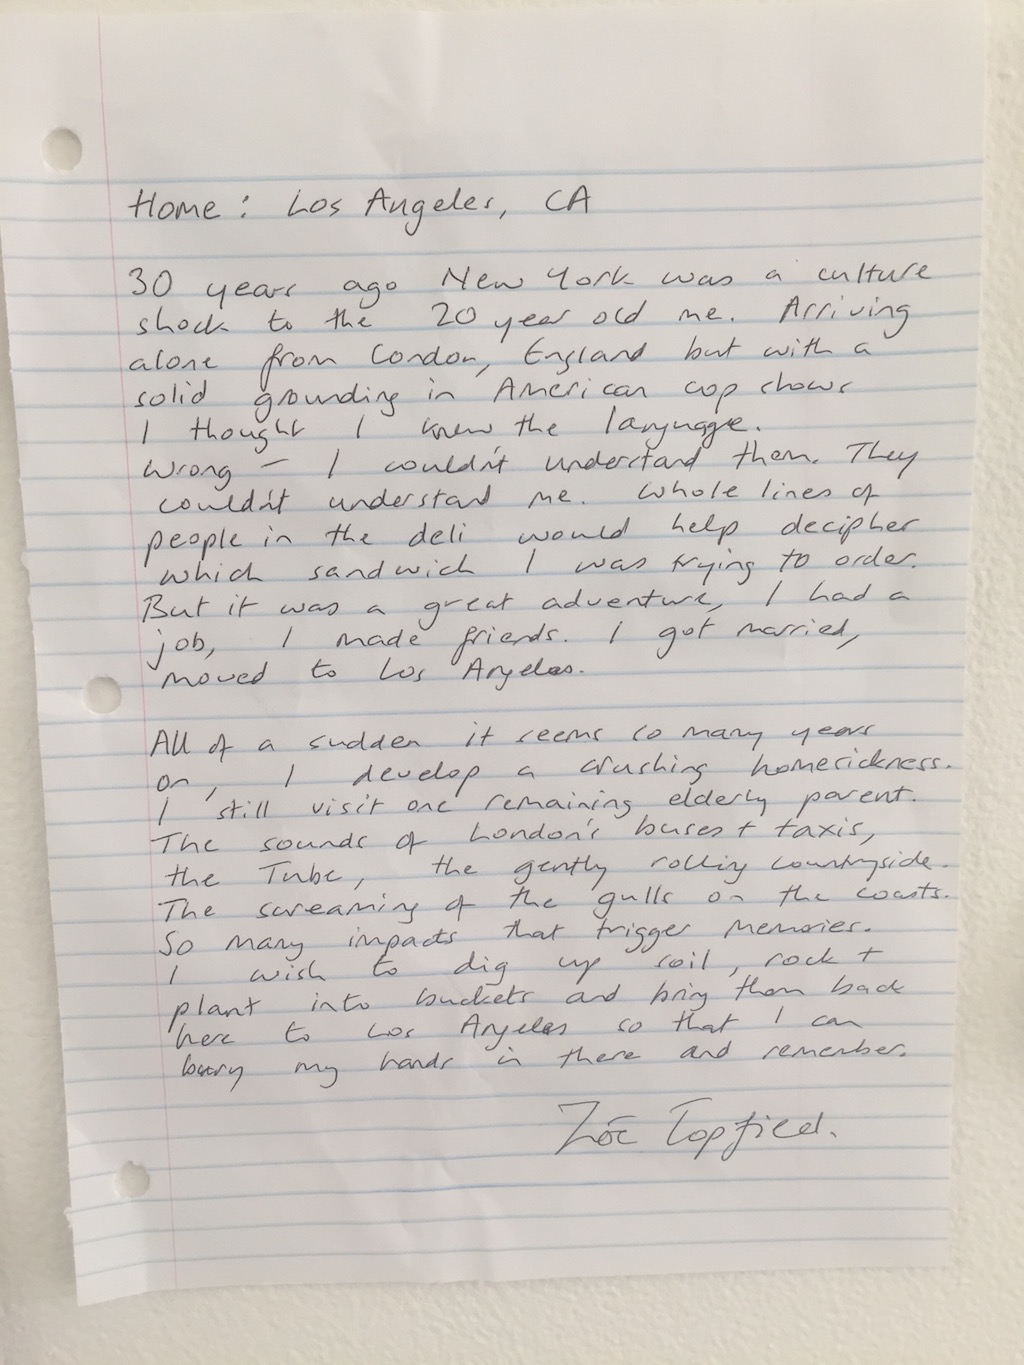 Home: Los Angeles, CA
30 years ago New York was a culture
shock to the 20 year old me. Arriving
alone from London, England but with a
solid grounding in American cop shows
I thought I knew the language.
Wrong – I couldn't understand them. They
couldn't understand me. Whole lines of
people in the deli would help decipher
which sandwich I was trying to order.
But it was a great adventure, I had a
job, I made friends. I got married,
moved to Los Angeles.
All of a sudden it seems so many years
on, I develop a crushing homesickness.
I still visit one remaining elderly parent.
The sounds of London's buses + taxis,
the Tube, the gently rolling countryside.
The screaming of the gulls on the coasts.
So many impacts that trigger memories.
I wish to dig up soil, rock +
plant into buckets and bring them back
here to Los Angeles so that I can
bury my hands in there and remember.
Zoë Topfield.